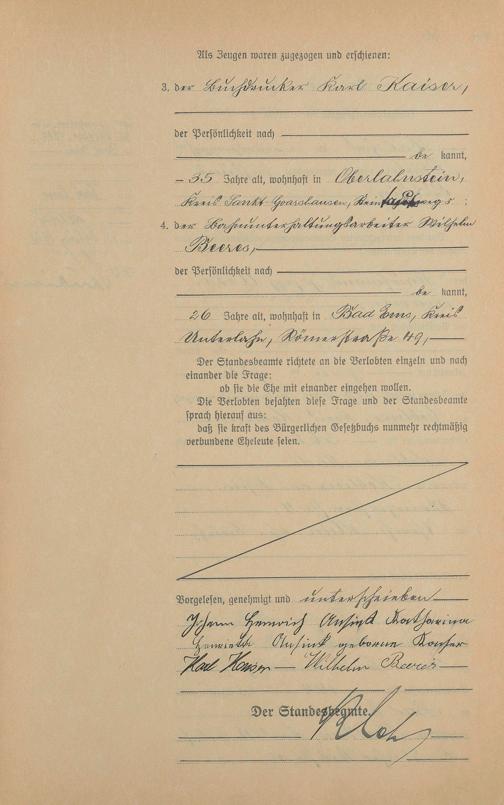 Als Zeugen waren zugezogen und erschienen:
3. der Buchdrucker Karl Kaiser,
der Persönlichkeit nach
be kannt,
35 Jahre alt, wohnhaft in Oberlahnstein,
Kreis Sankt Goarshausen,
4. der Bahnunterhaltungsarbeiter Wilhelm
Beeres,
der Persönlichkeit nach
be kannt,
26 Jahre alt, wohnhaft in Bad Ems, Kreis
Unterlahn, Römerstraße 49,
Der Standesbeamte richtete an die Verlobten einzeln und nach
einander die Frage:
ob sie die Ehe mit einander eingehen wollen.
Die Verlobten bejahten diese Frage und der Standesbeamte
sprach hierauf aus:
daß sie kraft des Bürgerlichen Gesetzbuchs nunmehr rechtmäßig
verbundene Eheleute seien.
Vorgelesen, genehmigt und unterschrieben
Johann Heinrich Ansink Katharina
Ansink geborene Kaiser
Karl Kaiser Wilhelm Beeres
Der Standesbeamte.